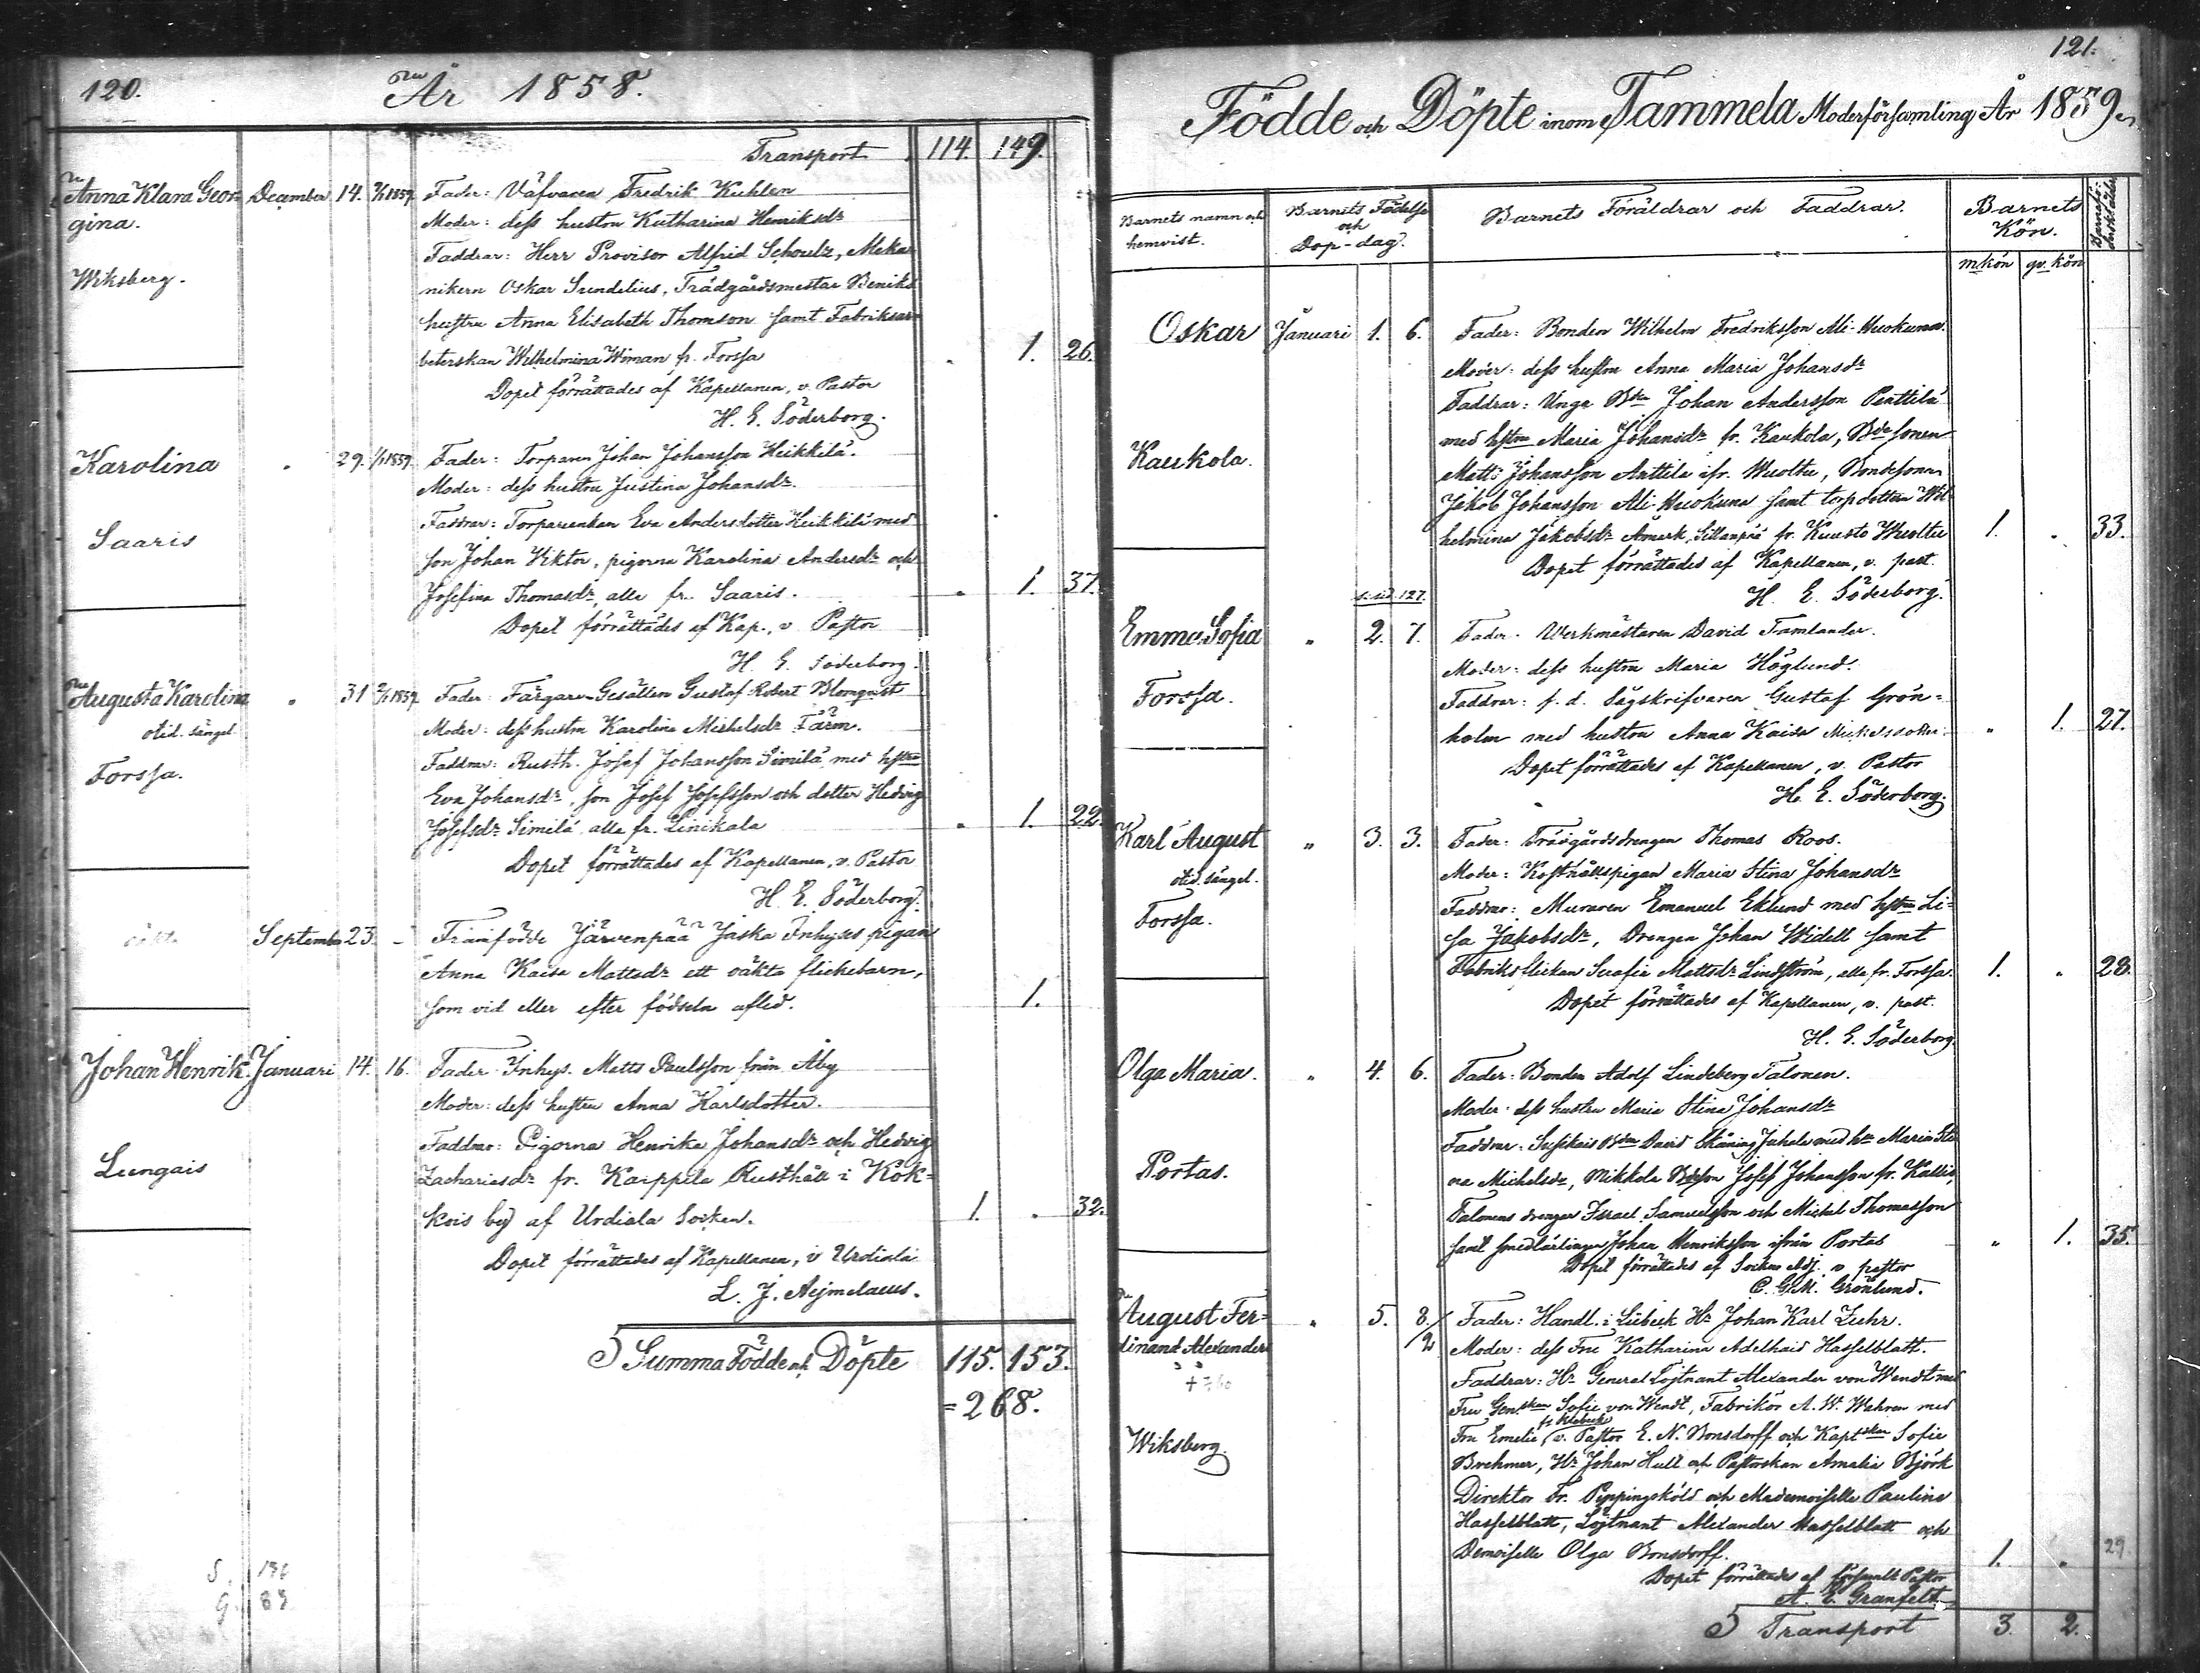 120.
År 1858.
Transport 114. 149.
Anna Klara Geor- December 14. 1859. Fader: Väfvaren Fredrik Kuhlen
gina. Moder: dess hustru Katharina Henriksdr
Faddrar: Herr Provisor Alfrid Schoultz, Meka-
Wiksberg. nikern Oskar Sundelius, Trädgårdsmestar
hustru Anna Elisabeth Thomson samt Fabriksar-
beterskan Wilhelmina Wiman fr. Forssa " 1. 26.
Dopet förrättades af Kapellanen, v. Pastor
H. E. Söderborg.
Karolina " 29. 1859. Fader: Torparen Johan Johansson Heikkilä.
Moder: dess hustru Justina Johansdr.
Saaris Faddrar: Torparenkan Eva Andersdotter Heikkilä med
son Johan Viktor, pigorna Karolina Andersdr och
Josefina Thomasdr, alla fr. Saaris. " 1. 37.
Dopet förrättades af Kap., v. Pastor
H. E. Söderborg.
Augusta Karolina " 31 1859 Fader: Färgare-Gesällen Gustaf Robert Blomqvist
otid. sängel. Moder: dess hustru Karolina Michelsdr Färm.
Forssa. Faddrar: Rusth. Josef Johansson Similä med hstru
Eva Johansdr, son Josef Josefsson och dotter Hedvig
Josefsdr Similä alla fr. Linikala " 1. 22.
Dopet förrättades af Kapellanen, v. Pastor
H. E. Söderborg.
oäkta September 23. - Framfödde Järvenpää Jaska Inhyses pigan
Anna Kaisa Mattsdr ett oäkta flickebarn,
som vid eller efter födseln afled. 1.
Johan Henrik. Januari 14. 16. Fader Inhys. Matts Paulsson från Åby
Moder: dess hustru Anna Karlsdotter.
Faddrar: Pigorna Henrika Johansdr och Hedvig
Lungais Zachariasdr fr. Kaippila Rusthåll i Kok-
kois by af Urdiala Socken. 1. " 32.
Dopet förrättades af Kapellanen, i Urdiala
L. J. Aejmelaeus.
Summa Födde och Döpte 115. 153.
= 268.
121.
Födde och Döpte inom Tammela Moderförsamling År 1859.
Barnets namn och hemvist. Barnets Födelse och Dop-dag. Barnets Föräldrar och Faddrar. Barnets Kön.
m.kön qv. kön
Oskar Januari 1. 6. Fader: Bonden Wilhelm Fredriksson Ali-Huokuna.
Moder: dess hustru Anna Maria Johansdr
Faddrar: Unga Bdn Johan Andersson Penttilä
Kaukola. med hstru Maria Johansdr fr. Kaukola, Bdesonen
Matts Johansson Anttila ifr. Wuoltu, Bondesonen
Jakob Johansson Ali-Huokuna samt torpdottern Wil-
helmina Jakobsdr Åmark, Sillanpää fr. Kuusto Wuoltu 1. " 33.
Dopet förrättades af Kapellanen, v. past.
H. E. Söderborg.
127.
Emma Sofia " 2. 7. Fader: Werkmästaren David Tamlander.
Moder: dess hustru Maria Höglund.
Forssa. Faddrar: f. d. Sågskrifvaren Gustaf Grön-
holm med hustru Anna Kaisa Mickelsdotter. " 1. 27.
Dopet förrättades af Kapellanen, v. Pastor
H. E. Söderborg.
Karl August " 3. 3. Fader: Trädgårdsdrengen Thomas Roos.
otid. sängel. Moder: Kosthållspigan Maria Stina Johansdr
Forssa. Faddrar: Muraren Emanuel Eklund med hstru Li-
sa Jakobsdr, Drengen Johan Widell samt
Fabriksflickan Serafia Mattsdr Lindström, alla fr. Forssa. 1. " 28.
Dopet förrättades af Kapellanen, v. past.
H. E. Söderborg
Olga Maria. " 4. 6. Fader: Bonden Adolf Lindeberg Talonen.
Moder: dess hustru Maria Stina Johansdr
Faddrar: Bdn David Skåning Jahala med h. Maria Sti-
Portas. na Michelsdr, Mikkola Bdeson Josef Johansson fr. Kallio,
Talonens drengar Israel Samuelsson och Michel Thomasson
samt smedlärlingen Johan Henriksson ifrån Portas " 1. 35.
Dopet förrättades af Socken Adj. v. pastor
C. G. M. Grönlund.
August Fer- " 5. 8/2 Fader: Handl. i Lübeck Hr Johan Karl Zuhr.
dinand Alexander Moder: dess Fru Katharina Adelhaid Hasselblatt.
Faddrar: Hr General Löjtnant Alexander von Wendt med
Fru Gen.skan Sofie von Wendt, Fabrikör A. W. Wahren med
Wiksberg. Fru Emelie, v. Pastor E. N. Bonsdorff och Kaptskan Sofie
Brehmer, Hr Johan Hull och Pastorskan Amalia Björk
Direktor Fr. Peppingsköld och Mademoiselle Pauline
Hasselblatt, Löjtnant Alexander Hasselblatt och
Demoiselle Olga Bonsdorff. 1. " 29.
Dopet förrättades af Pastor
A. E. Granfelt.
Transport 3. 2.